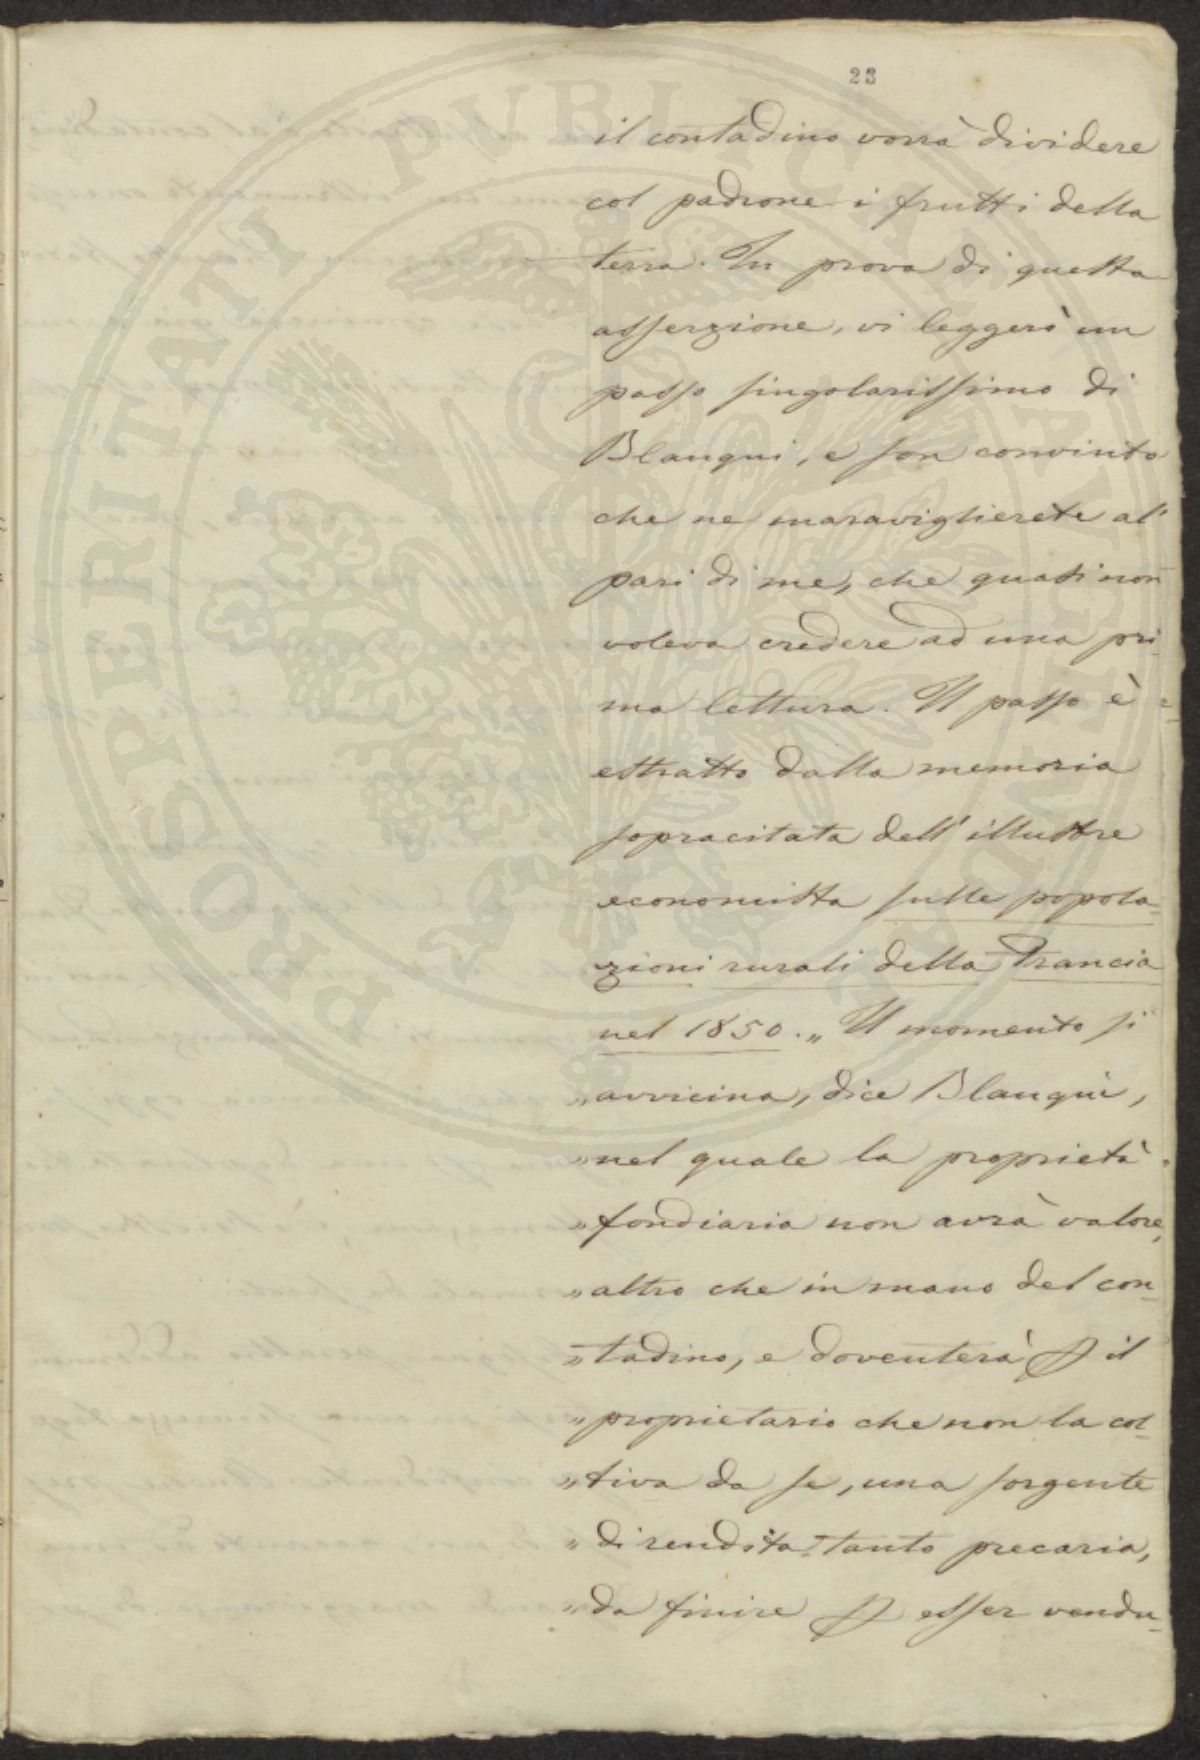 23
il contadino vorrà dividere
col padrone i frutti della
terra. In prova di questa
asserzione, vi leggerò un
passo singolarissimo di
Blanqui, e son convinto
che ne maraviglierete al
pari di me, che quasi non
voleva credere ad una pri-
ma lettura. Il passo è
estratto dalla memoria
sopracitata dell' illustre
economista sulle popola-
zioni rurali della Francia
nel 1850. „ Il momento si
„ avvicina, dice Blanqui,
„ nel quale la proprietà
„ fondiaria non avrà valore,
„ altro che in mano del con-
„ tadino, e doventerà il
„ proprietario che non la col-
„ tiva da se, una sorgente
„ di rendita tanto precaria,
„ da finire esser vendu-
PROSPERITATI PUBLICAE AUGENDAE